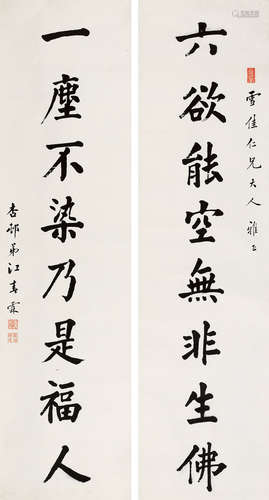 雪佳仁兄大人雅正
六欲能空無非生佛
一塵不染乃是福人
杏邨弟江春霖